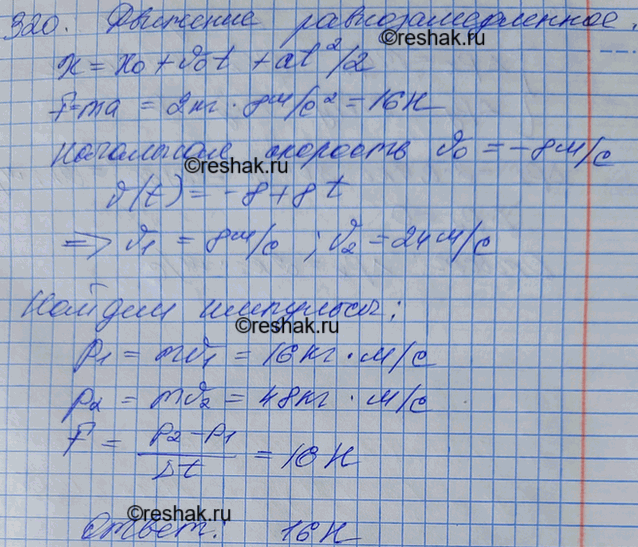 320. Движение равнозамедленное.
©reshak.ru
x = x₀ + v₀t + at²/2
F = ma = 2кг · 8м/с² = 16Н
Начальная скорость v₀ = -8м/с
©reshak.ru
v(t) = -8 + 8t
=> v₁ = 8м/с ; v₂ = 24м/с
Найдем импульсы:
©reshak.ru
p₁ = mv₁ = 16кг · м/с
p₂ = mv₂ = 48кг · м/с
F = p₂ - p₁ / Δt = 16Н
©reshak.ru
Ответ: 16Н